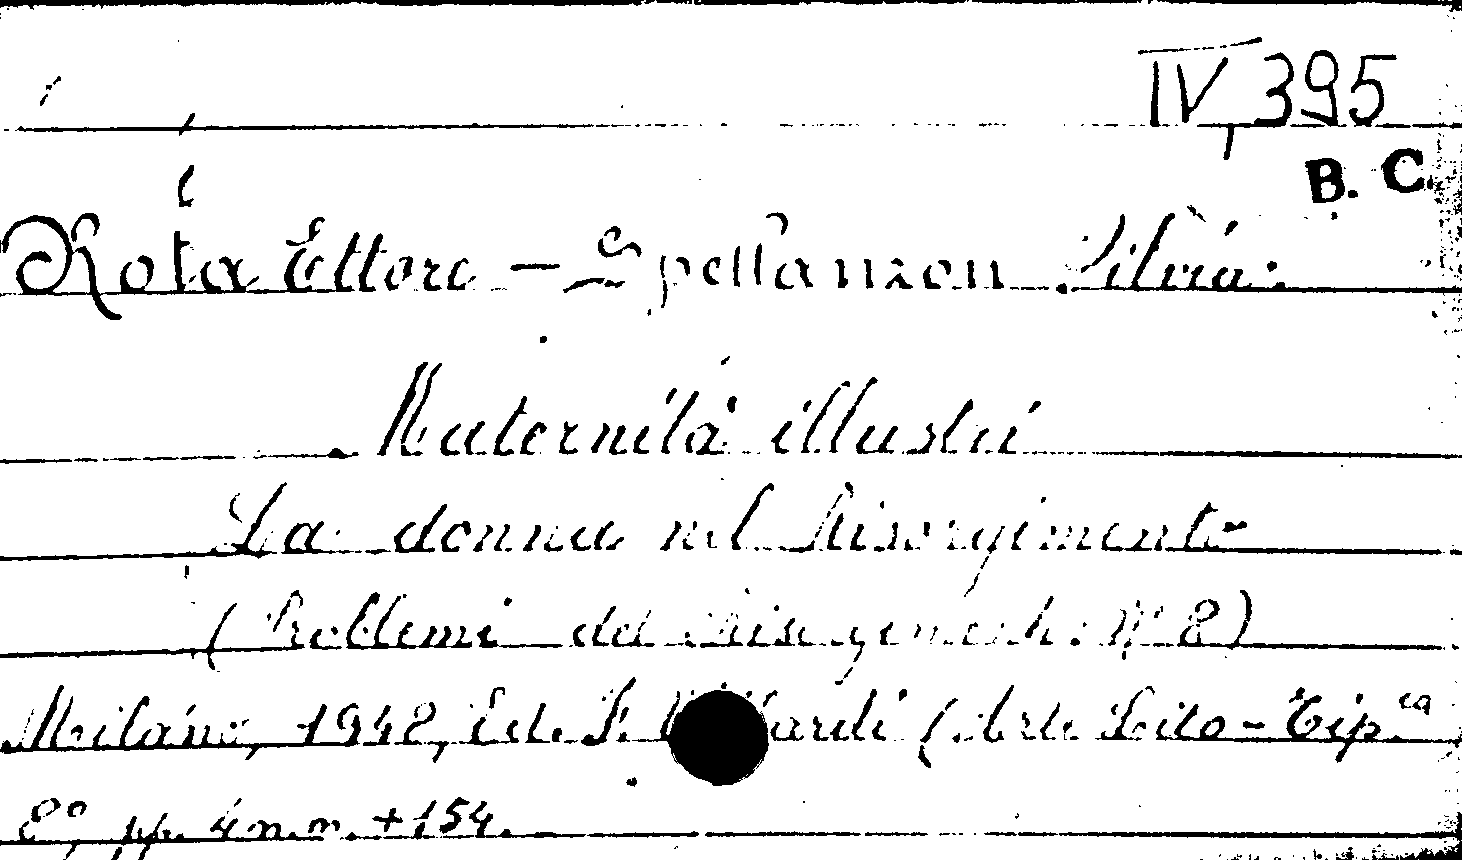 IV 395
B. C.
Rota Ettore - Spellanzon Silvia:
Maternità illustri
La donna nel Risorgimento
(Problemi del Risorgimento: N° 2)
Milano, 1948, Ed. F. ardi (Arte Lito-Tip.ca
8°, pp. 4 n. n. + 154.